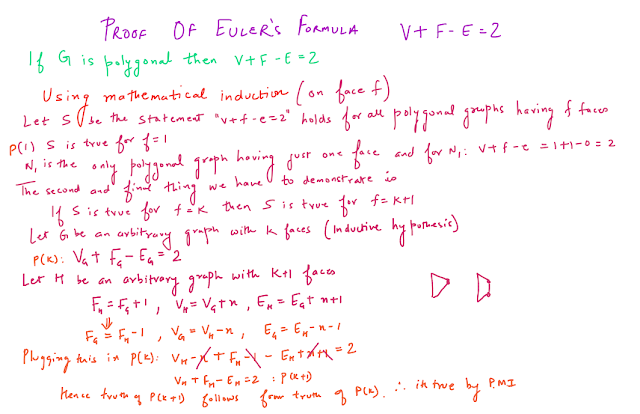 PROOF OF EULER'S FORMULA V+F-E=2
If G is polygonal then V+F-E=2
Using mathematical induction (on face f)
Let S be the statement "v+f-e=2" holds for all polygonal graphs having f faces
P(1) S is true for f=1
N₁ is the only polygonal graph having just one face and for N₁: v+f-e = 1+1-0 = 2
The second and final thing we have to demonstrate is
If S is true for f=K then S is true for f=K+1
Let G be an arbitrary graph with k faces (Inductive hypothesis)
P(K): V_G + F_G - E_G = 2
Let H be an arbitrary graph with K+1 faces
F_H = F_G+1, V_H = V_G+n, E_H = E_G+n+1
⇓
F_G = F_H-1, V_G = V_H-n, E_G = E_H-n-1
Plugging this in P(K): V_H-n+F_H-1-E_H+n+1=2
V_H+F_H-E_H=2 : P(K+1)
Hence truth of P(K+1) follows from truth of P(K). ∴ it true by P.M.I